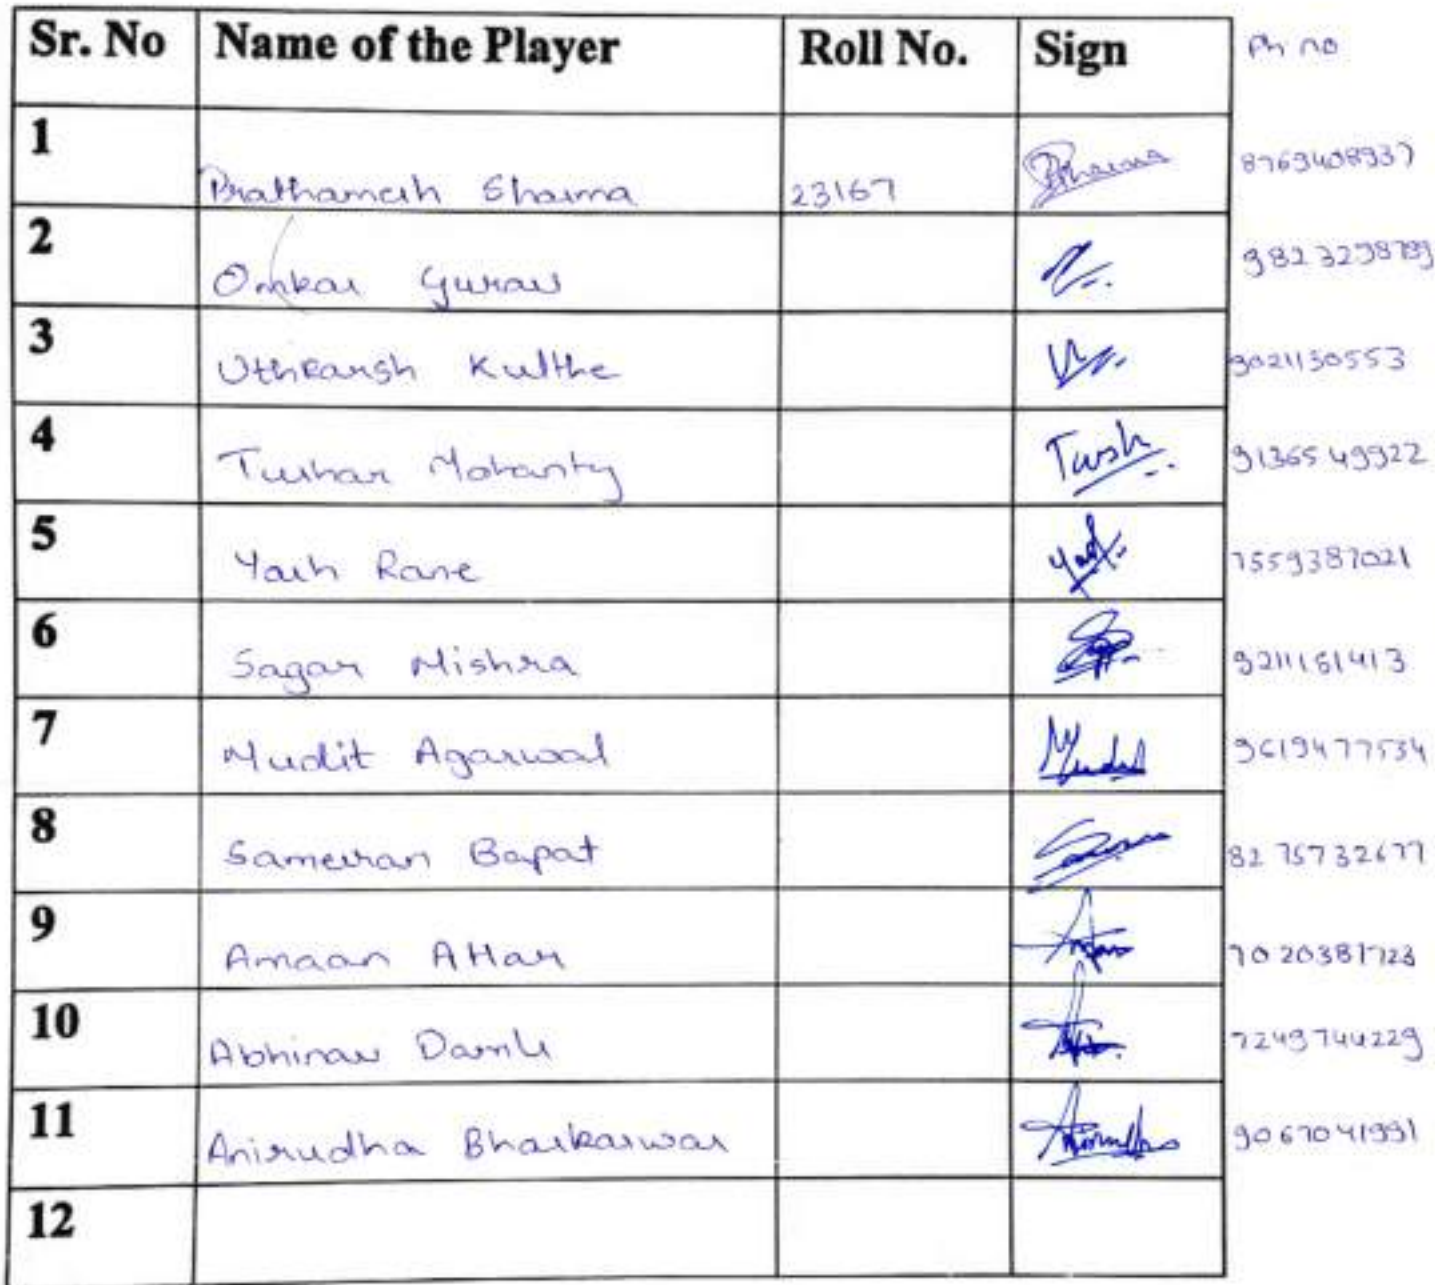 Sr. No Name of the Player Roll No. Sign Ph no
1 Prathamesh Sharma 23167 8769408937
2 Omkar Gurav 9823298789
3 Uthkarsh Kulthe 9021130553
4 Tushar Mohanty Tush 9136549922
5 Yash Rane Yash 7559387021
6 Sagar Mishra 9211161413
7 Mudit Agarwal Mudit 9619477534
8 Sameeran Bapat 8275732677
9 Amaan Attar 7020381723
10 Abhinav Damle 7249744229
11 Anirudha Bhaskarwar Anirudha 9067041991
12